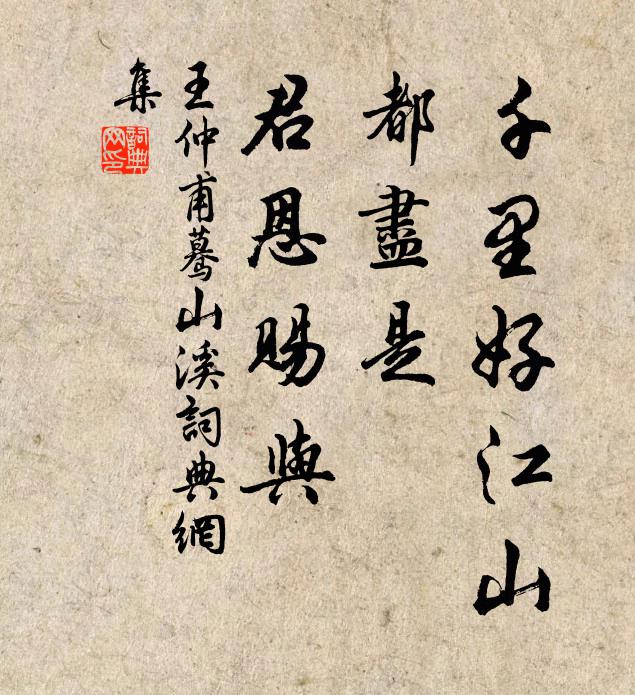 千里好江山
都盡是
君恩賜與
王仲甫驀山溪詞典網
集
詞典
网印